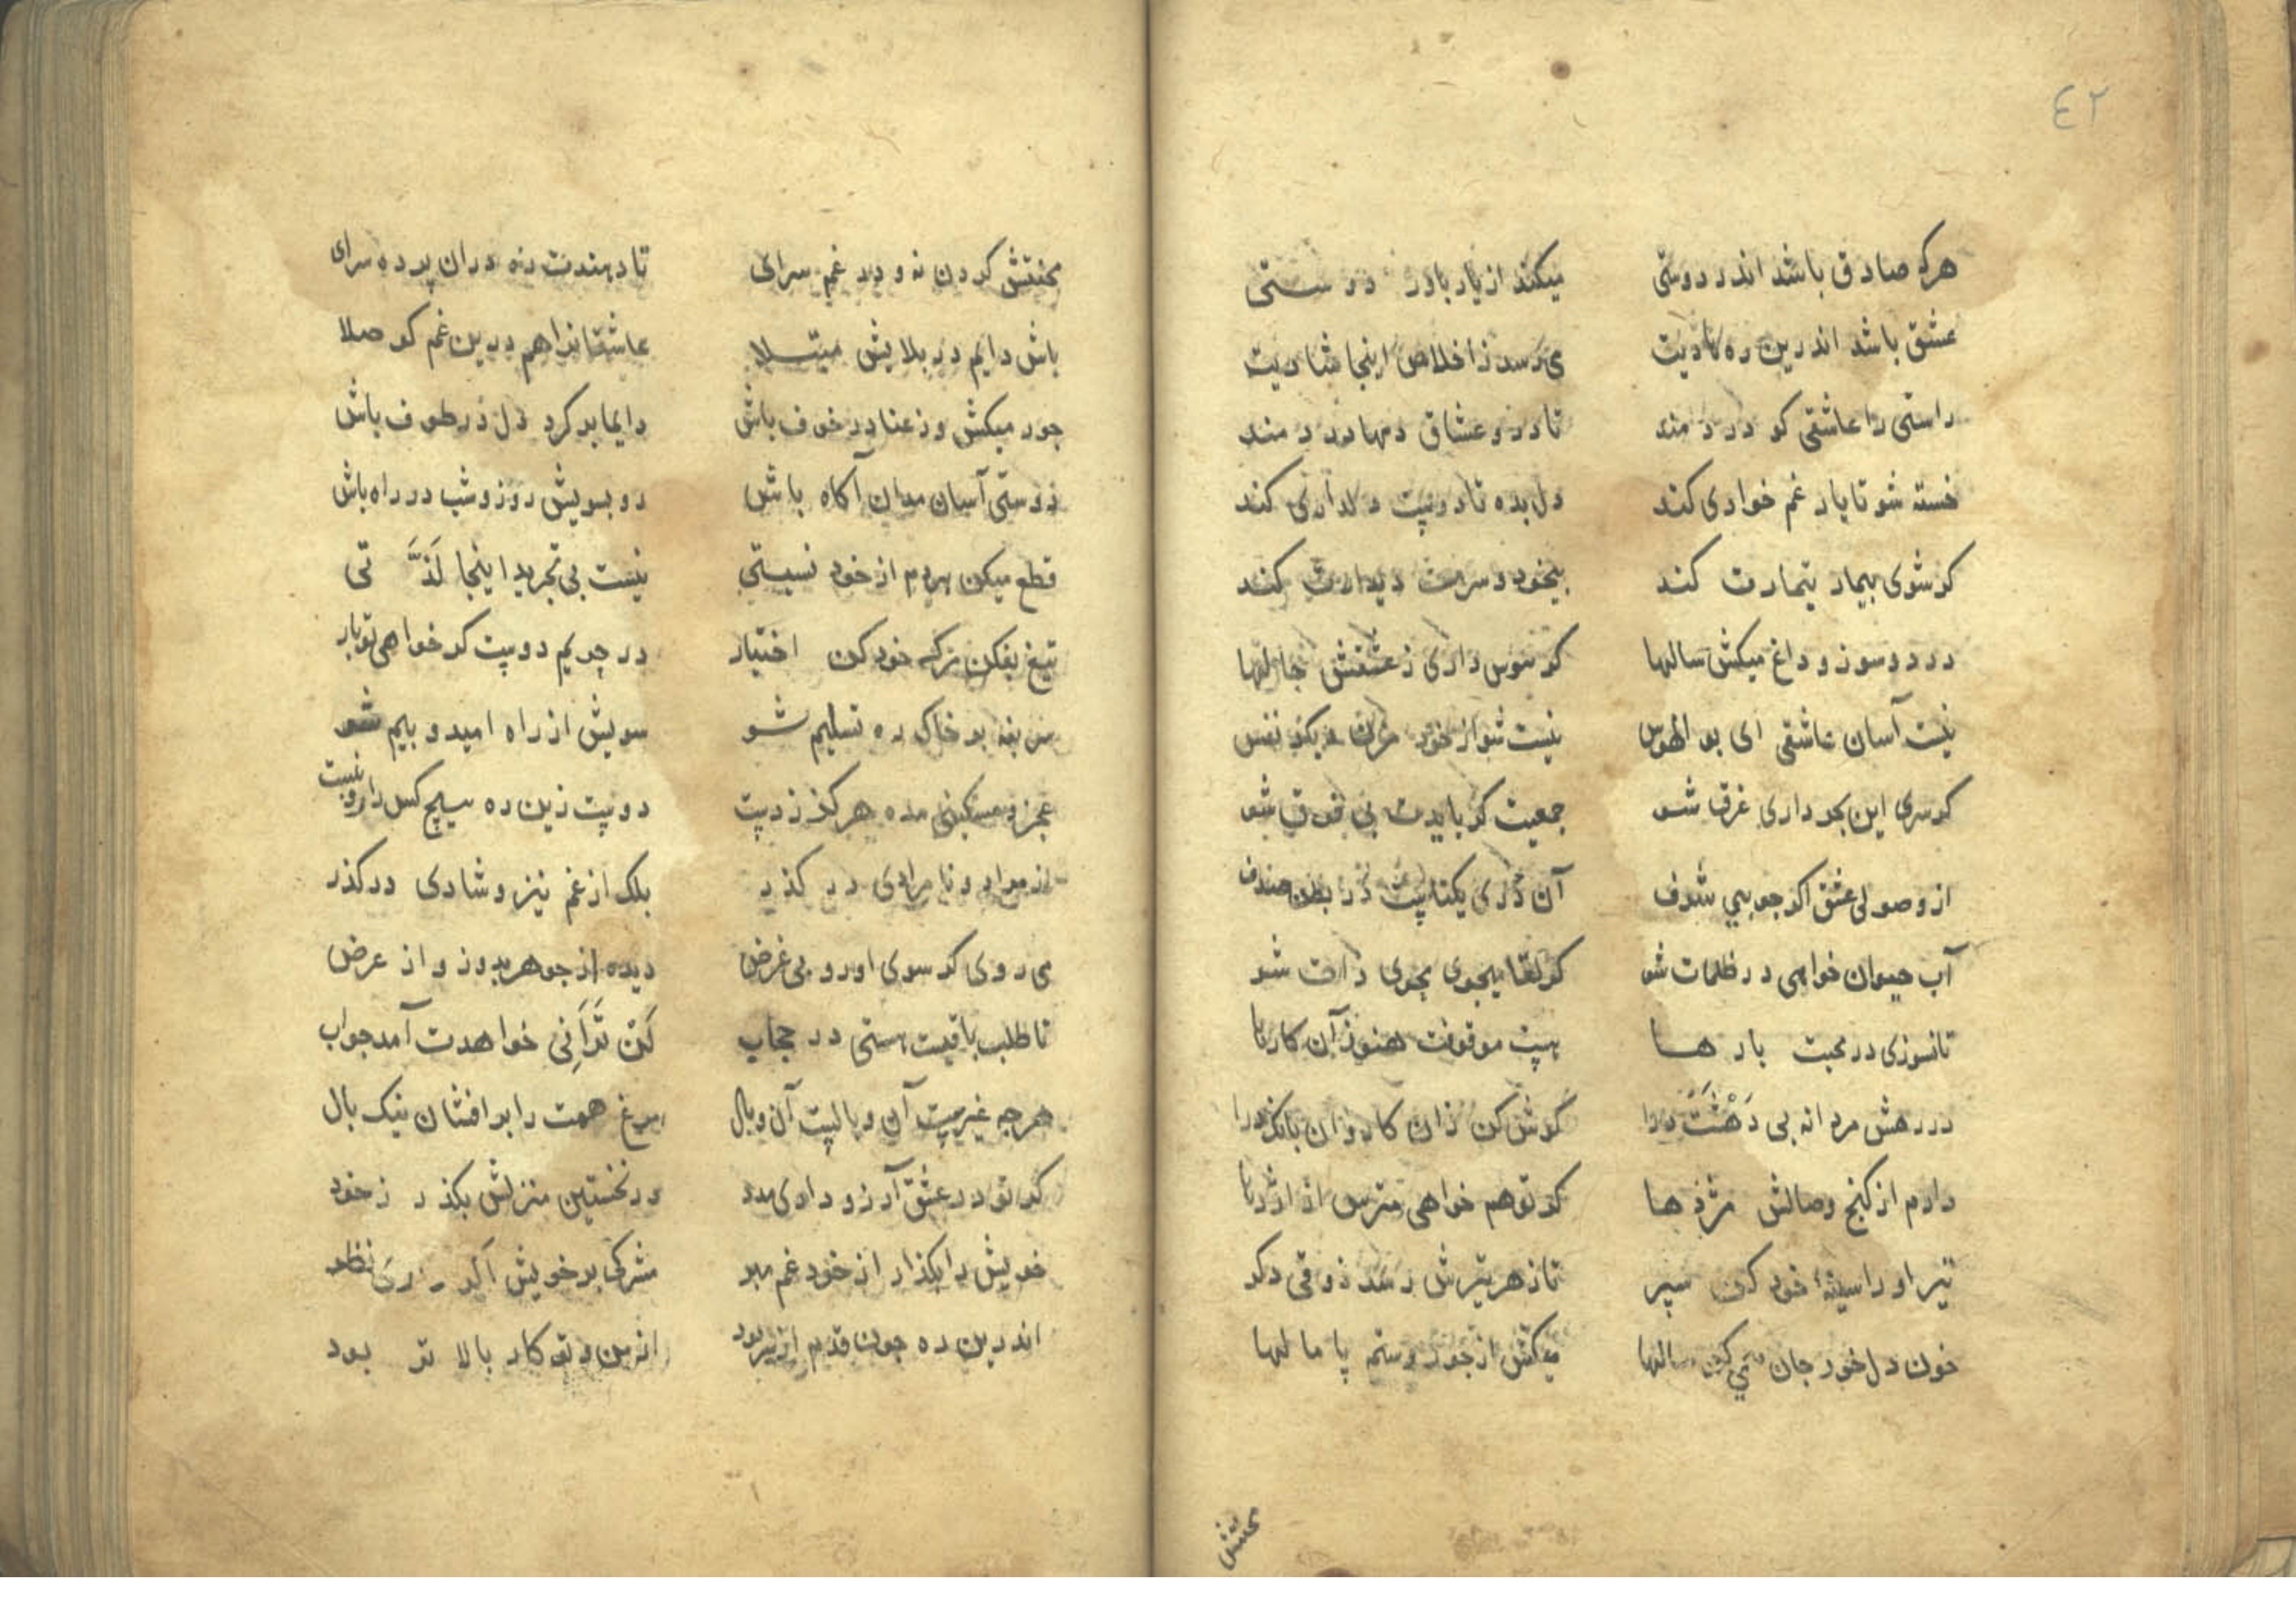 ٤٢
هرکه صادق باشد اندر دوستی میکند از یار باور دوستی
عشق باشد اندرین ره هادیت می رسد ز اخلاص اینجا شادیت
راستی را عاشقی کو دردمند تا درو عشاق دمها دردمند
خسته شو تا یار غم خواری کند دل بده تا دوست دلداری کند
کر شوی بیمار تیمارت کند بیخود و سرمست دیدارت کند
درد و سوز و داغ میکش سالها کر هوس داری ز عشقش حالها
نیست آسان عاشقی ای بو الهوس نیست شو از خود مزن دیکر نفس
کر سری این بحر داری غرق شو جمعیت کر بایدت بی فوق شو
از وصولی عشق اکر جویی شرف آن دُرّی یکتاست در بطن صدف
آب حیوان خواهی در ظلمات شو کر لقا میجوی بجوی ذات شو
تا نسوزی در محبت بارها هست موقوفت هنوز آن کارها
در رهش مردانه بی دَهْشَت درا کوش کن زان کاروان بانک درا
دارم از کنج وصالش مژده ها کر تو هم خواهی مترس از اژدها
تیر او را سینهٔ خود کن سپر تا ز هر تیرش رسد ذوقی دکر
خون دل خور جان کن سالها میکش از جور و ستم پا مالها
محنتش
محنتش کردن نه و در غم سرای تا دهندت ره دران پرده سرای
باش دایم در بلایش مبتلا عاشقانرا هم درین غم کو صلا
جور میکش وز عنا در خوف باش دایما بر کرد دل در طوف باش
دوستی آسان مدان آکاه باش رو بسویش روز و شب در راه باش
قطع میکن هردم از خود نسبتی نیست بی تجرید اینجا لَذَّتی
تیغ بفکن ترک خود کن اختیار در حریم دوست کر خواهی تو بار
سر بنه بر خاک ره تسلیم شو سویش از راه امید و بیم شو
عجز و مسکینی مده هرکز ز دست دوست زین ره هیچ کس را رو نبست
از مراد و نا مرادی در کذر بلک از غم نیز و شادی در کذر
می روی کر سوی او رو بی غرض دیده از جوهر بدوز و از عرض
تا طلب باقیست هستی در حجاب لَنْ تَرَانِی خواهدت آمد جواب
هرچه غیرست آن وبالست آن وبال مرغ همت را بر افشان نیک بال
کر تو در عشق آرزو داری مدد در نخستین منزلش بکذر ز خود
خویش را بکذار از خود غم مبر مشرکی بر خویش اکر داری نظر
اندرین ره چون قدم از سر بود از من و تو کار بالا تر بود